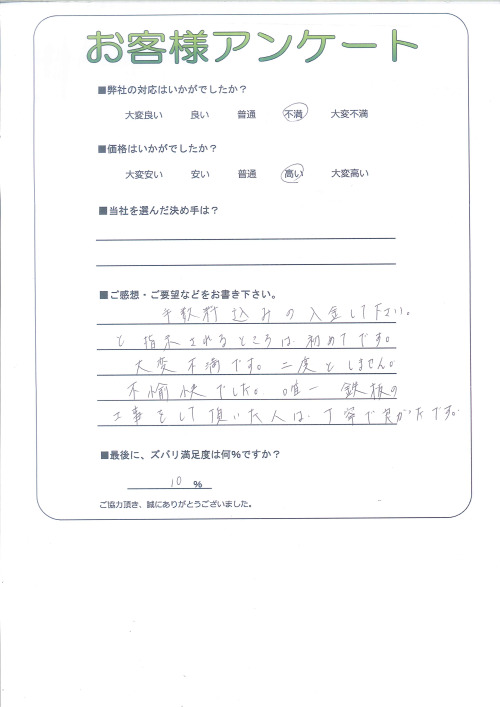 お客様アンケート
■弊社の対応はいかがでしたか？
大変良い 良い 普通 不満 大変不満
■価格はいかがでしたか？
大変安い 安い 普通 高い 大変高い
■当社を選んだ決め手は？
■ご感想・ご要望などをお書き下さい。
手数料込みの入金して下さい。
と指示されるところは初めてです。
大変不満です。二度としません。
不愉快でした。唯一 鉄板の
工事をして頂いた人は、丁寧で良かったです。
■最後に、ズバリ満足度は何%ですか？
10 %
ご協力頂き、誠にありがとうございました。